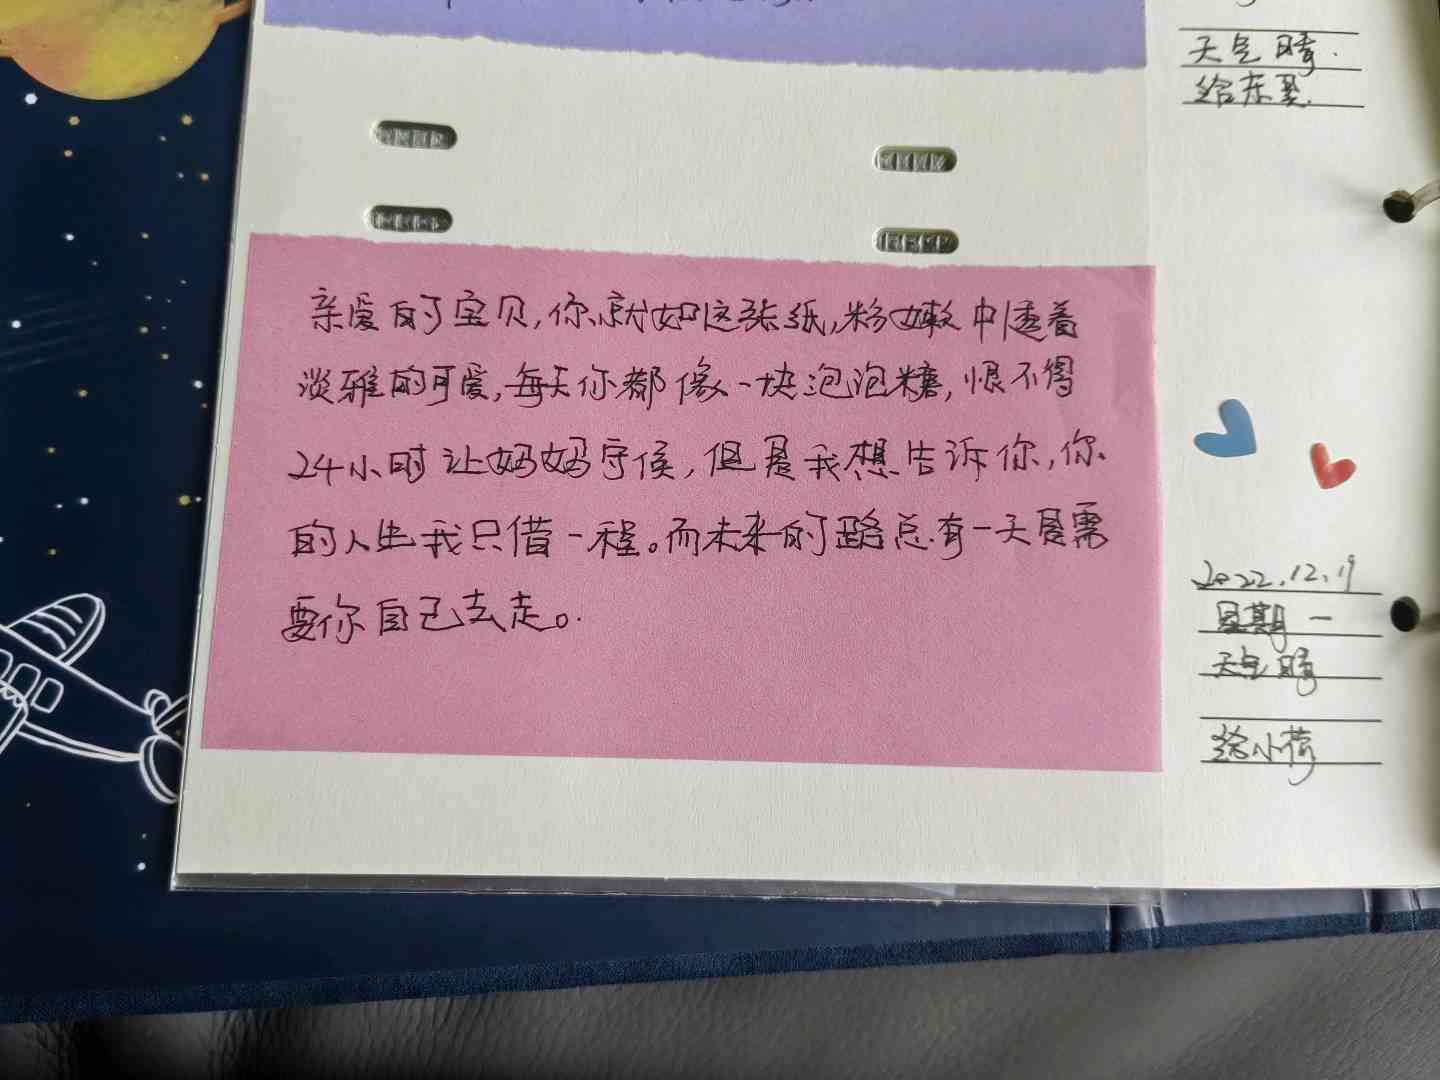 天气晴.
给东
亲爱的宝贝,你就如这张纸,粉嫩中透着
淡雅的可爱,每天你都像一块泡泡糖,恨不得
24小时让妈妈守候,但是我想告诉你,你
的人生我只借一程。而未来的路总有一天是需
要你自己去走。
2022.12.19
星期一
天气晴
给小荷